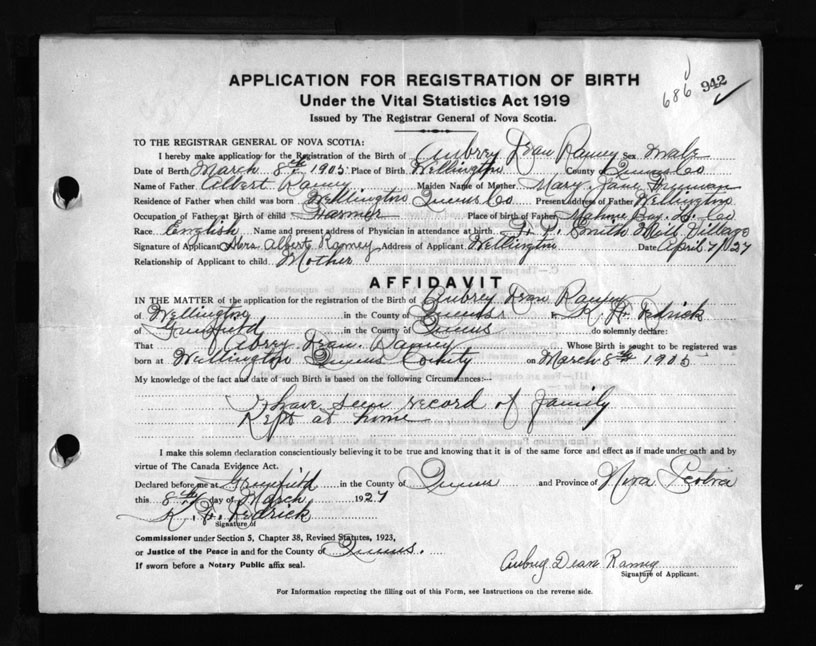 686 942
APPLICATION FOR REGISTRATION OF BIRTH
Under the Vital Statistics Act 1919
Issued by The Registrar General of Nova Scotia.
TO THE REGISTRAR GENERAL OF NOVA SCOTIA:
I hereby make application for the Registration of the Birth of Aubrey Dean Ramey Sex Male
Date of Birth March 8th 1905 Place of Birth Wellington County of Queens Co
Name of Father Albert Ramey Maiden Name of Mother Mary Jane Freeman
Residence of Father when child was born Wellington Queens Co Present Address of Father Wellington
Occupation of Father at Birth of child Farmer Place of birth of Father Mahone Bay. L. Co
Race English Name and present address of Physician in attendance at birth Smith Mill Village
Signature of Applicant Mrs Albert Ramey Address of Applicant Wellington Date April 7/1927
Relationship of Applicant to child Mother
AFFIDAVIT
IN THE MATTER of the application for the registration of the Birth of Aubrey Dean Ramey
of Wellington in the County of Queens I,
of Greenfield in the County of Queens do solemnly declare:
That Aubrey Dean Ramey Whose Birth is sought to be registered was
born at Wellington Queens County on March 8th 1905
My knowledge of the fact and date of such Birth is based on the following Circumstances:—
I have seen record of family
Kept at home
I make this solemn declaration conscientiously believing it to be true and knowing that it is of the same force and effect as if made under oath and by
virtue of The Canada Evidence Act.
Declared before me at Greenfield in the County of Queens and Province of Nova Scotia
this 8th day of March 1927
Signature of
Commissioner under Section 5, Chapter 38, Revised Statutes, 1923,
or Justice of the Peace in and for the County of Queens.
If sworn before a Notary Public affix seal.
Aubrey Dean Ramey
Signature of Applicant.
For Information respecting the filling out of this Form, see Instructions on the reverse side.